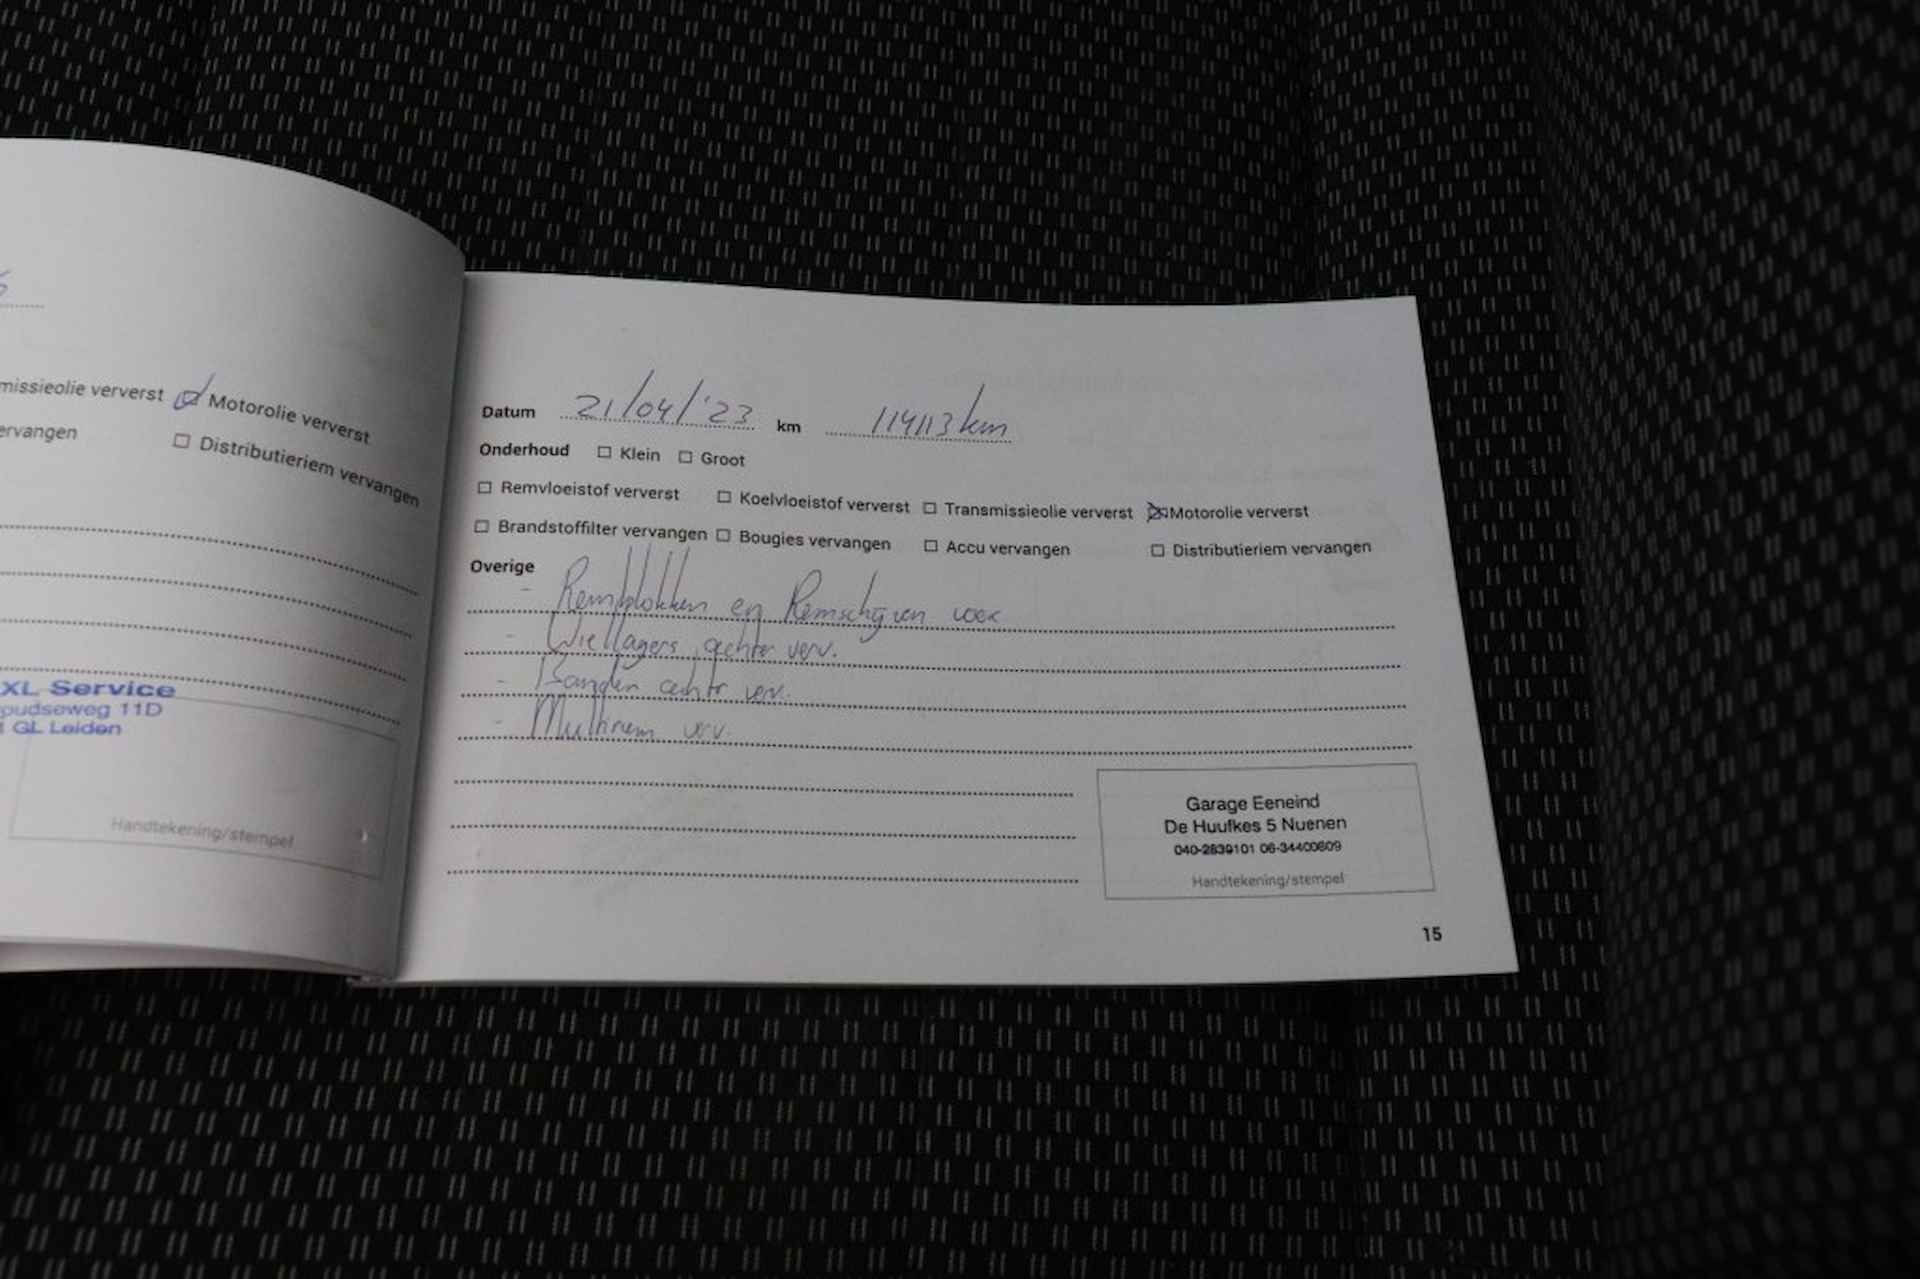 missieolie ververst Motorolie ververst
ervangen Distributieriem vervangen
XL Service
oudseweg 11D
GL Leiden
Handtekening/stempel
Datum 21/04/'23 km 114113 km
Onderhoud Klein Groot
Remvloeistof ververst Koelvloeistof ververst Transmissieolie ververst Motorolie ververst
Brandstoffilter vervangen Bougies vervangen Accu vervangen Distributieriem vervangen
Overige
- Remblokken en Remschijven voor
- Wiellagers achter verv.
- Banden achter verv.
- Multiriem verv.
Garage Eeneind
De Huufkes 5 Nuenen
040-2839101 06-34400609
Handtekening/stempel
15